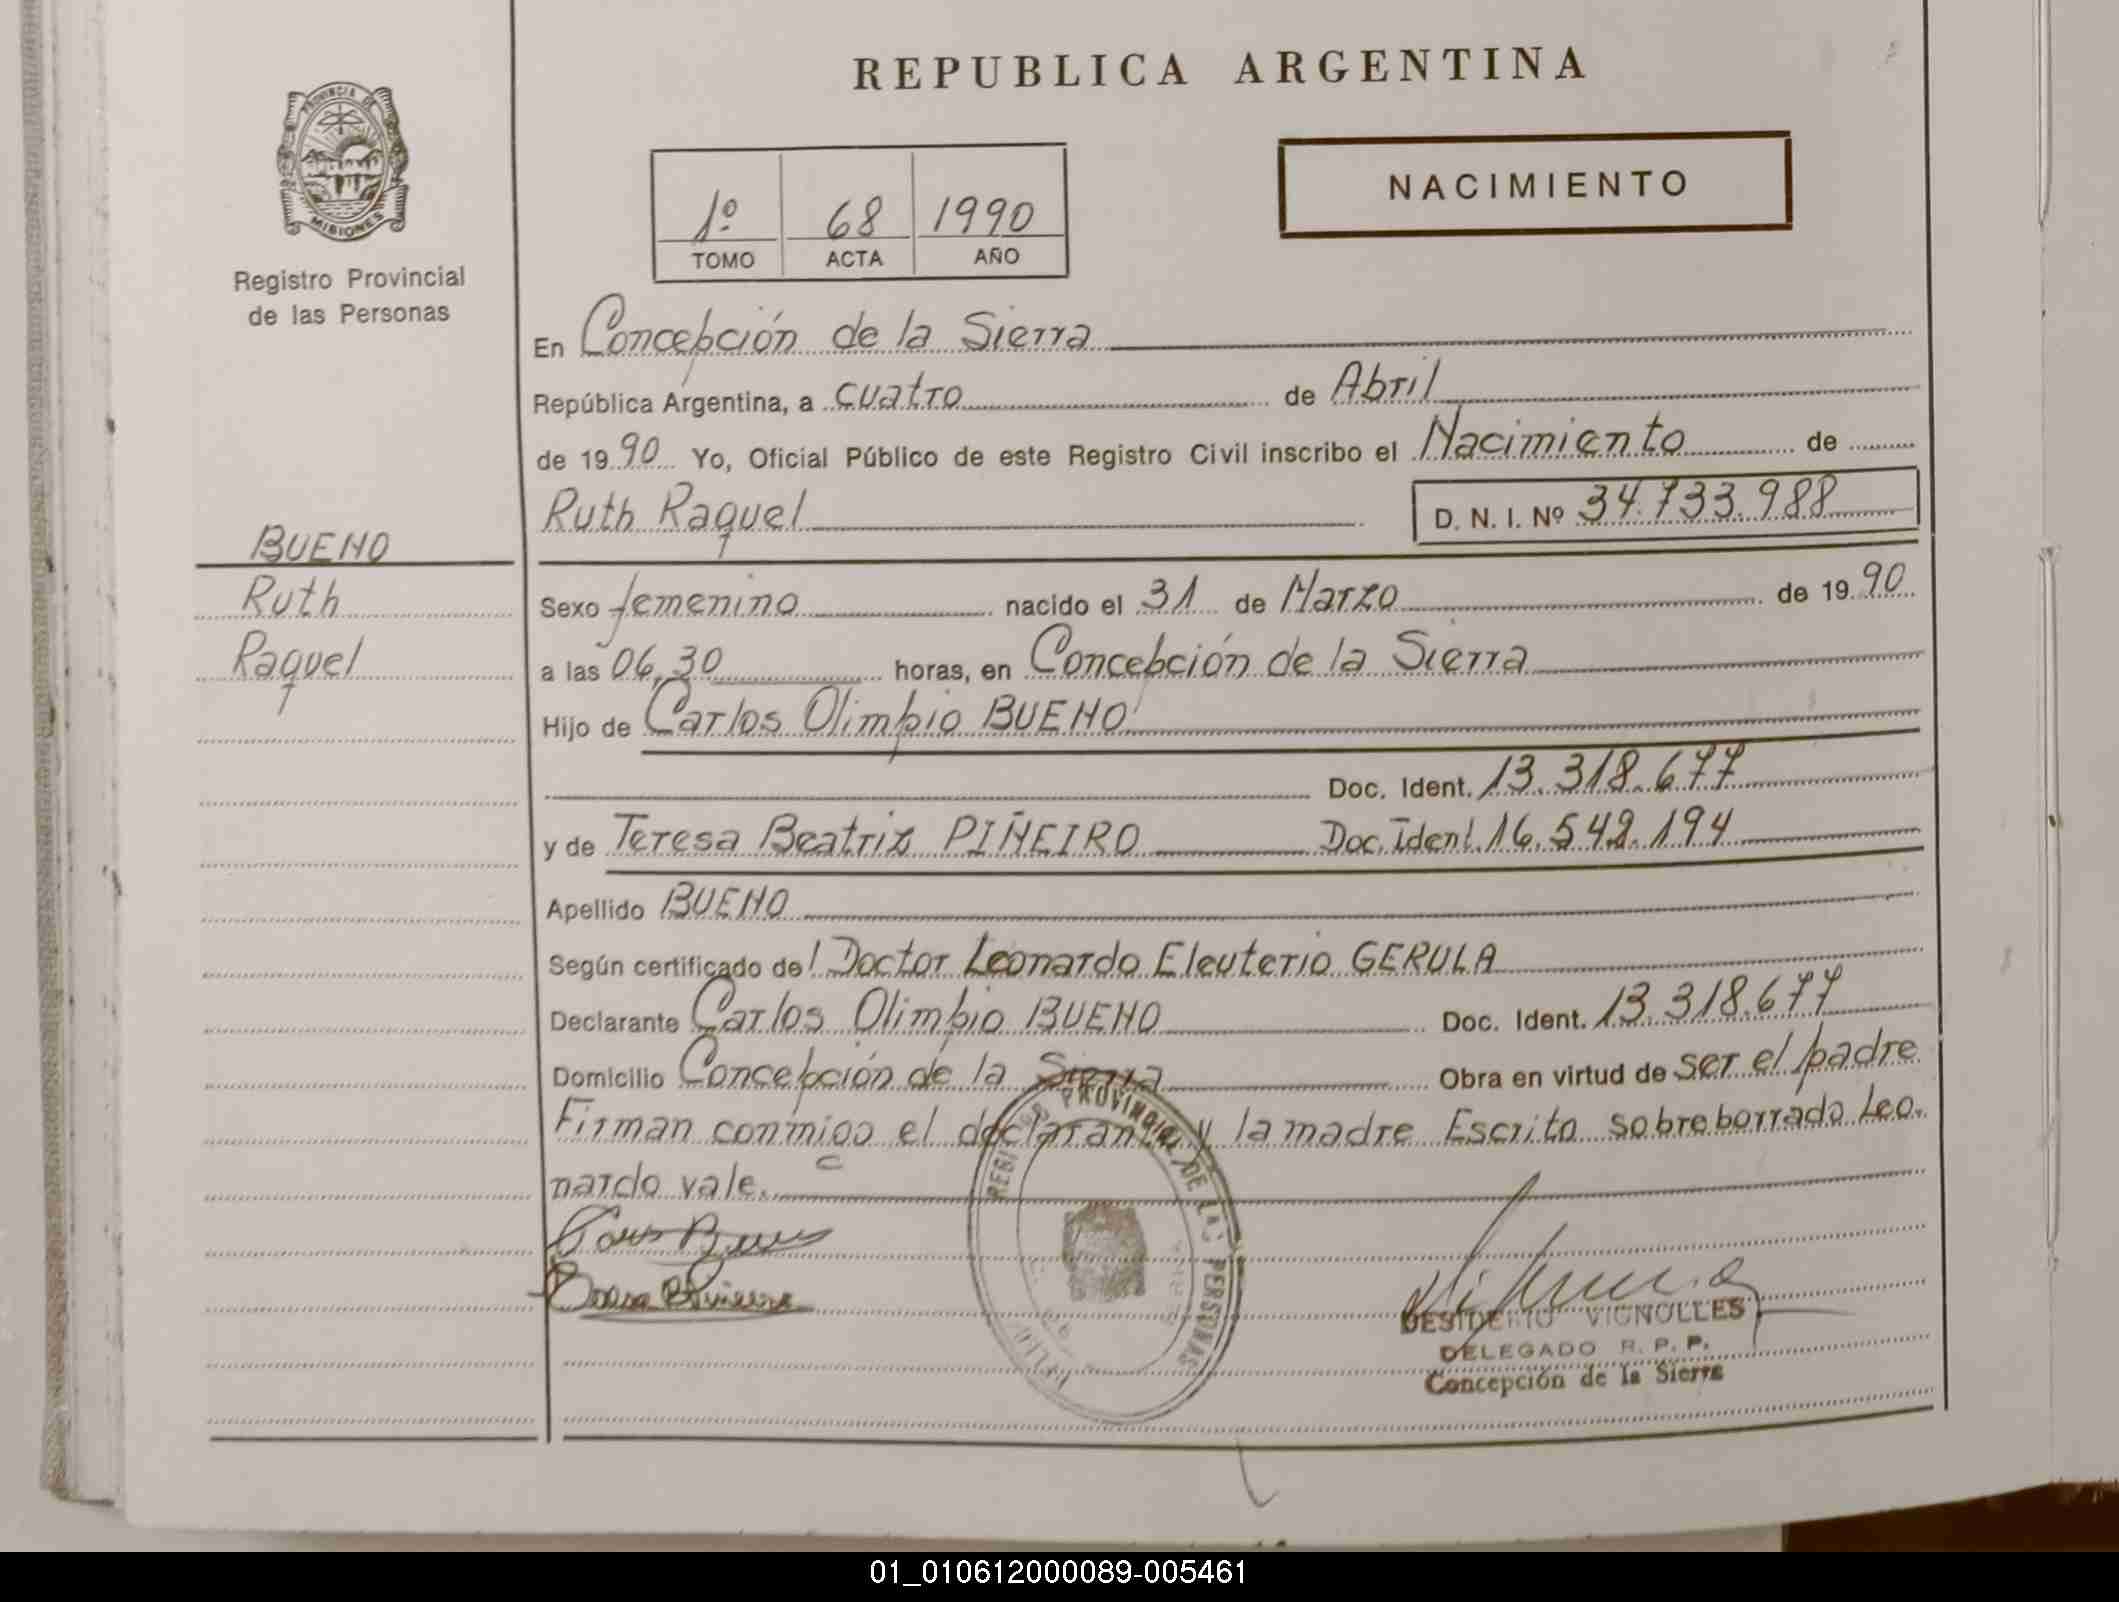 REPUBLICA ARGENTINA
PROVINCIA DE
MISIONES
Registro Provincial
de las Personas
1º 68 1990
TOMO ACTA AÑO
NACIMIENTO
En Concepción de la Sierra
República Argentina, a cuatro de Abril
de 1990 Yo, Oficial Público de este Registro Civil inscribo el Nacimiento de
Ruth Raquel D. N. I. Nº 34.733.988
BUENO
Ruth
Raquel
Sexo femenino nacido el 31 de Marzo de 1990
a las 06,30 horas, en Concepción de la Sierra
Hijo de Carlos Olimpio BUENO
Doc. Ident. 13.318.677
y de Teresa Beatriz PIÑEIRO Doc. Ident. 16.542.194
Apellido BUENO
Según certificado del Doctor Leonardo Eleuterio GERULA
Declarante Carlos Olimpio BUENO Doc. Ident. 13.318.677
Domicilio Concepción de la Sierra Obra en virtud de ser el padre
Firman conmigo el declarante y la madre Escrito sobreborrado Leo.
nardo vale.
PROVINCIAL DE LAS PERSONAS
DESIDERIO VIGNOLLES
DELEGADO R. P. P.
Concepción de la Sierra
01_010612000089-005461